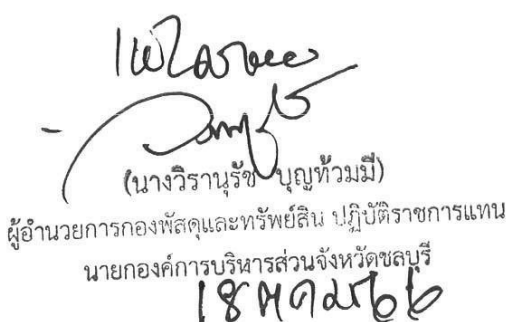 (นางวิรานุรัช บุญท้วมมี)
ผู้อำนวยการกองพัสดุและทรัพย์สิน ปฏิบัติราชการแทน
นายกองค์การบริหารส่วนจังหวัดชลบุรี
18 ตค 66